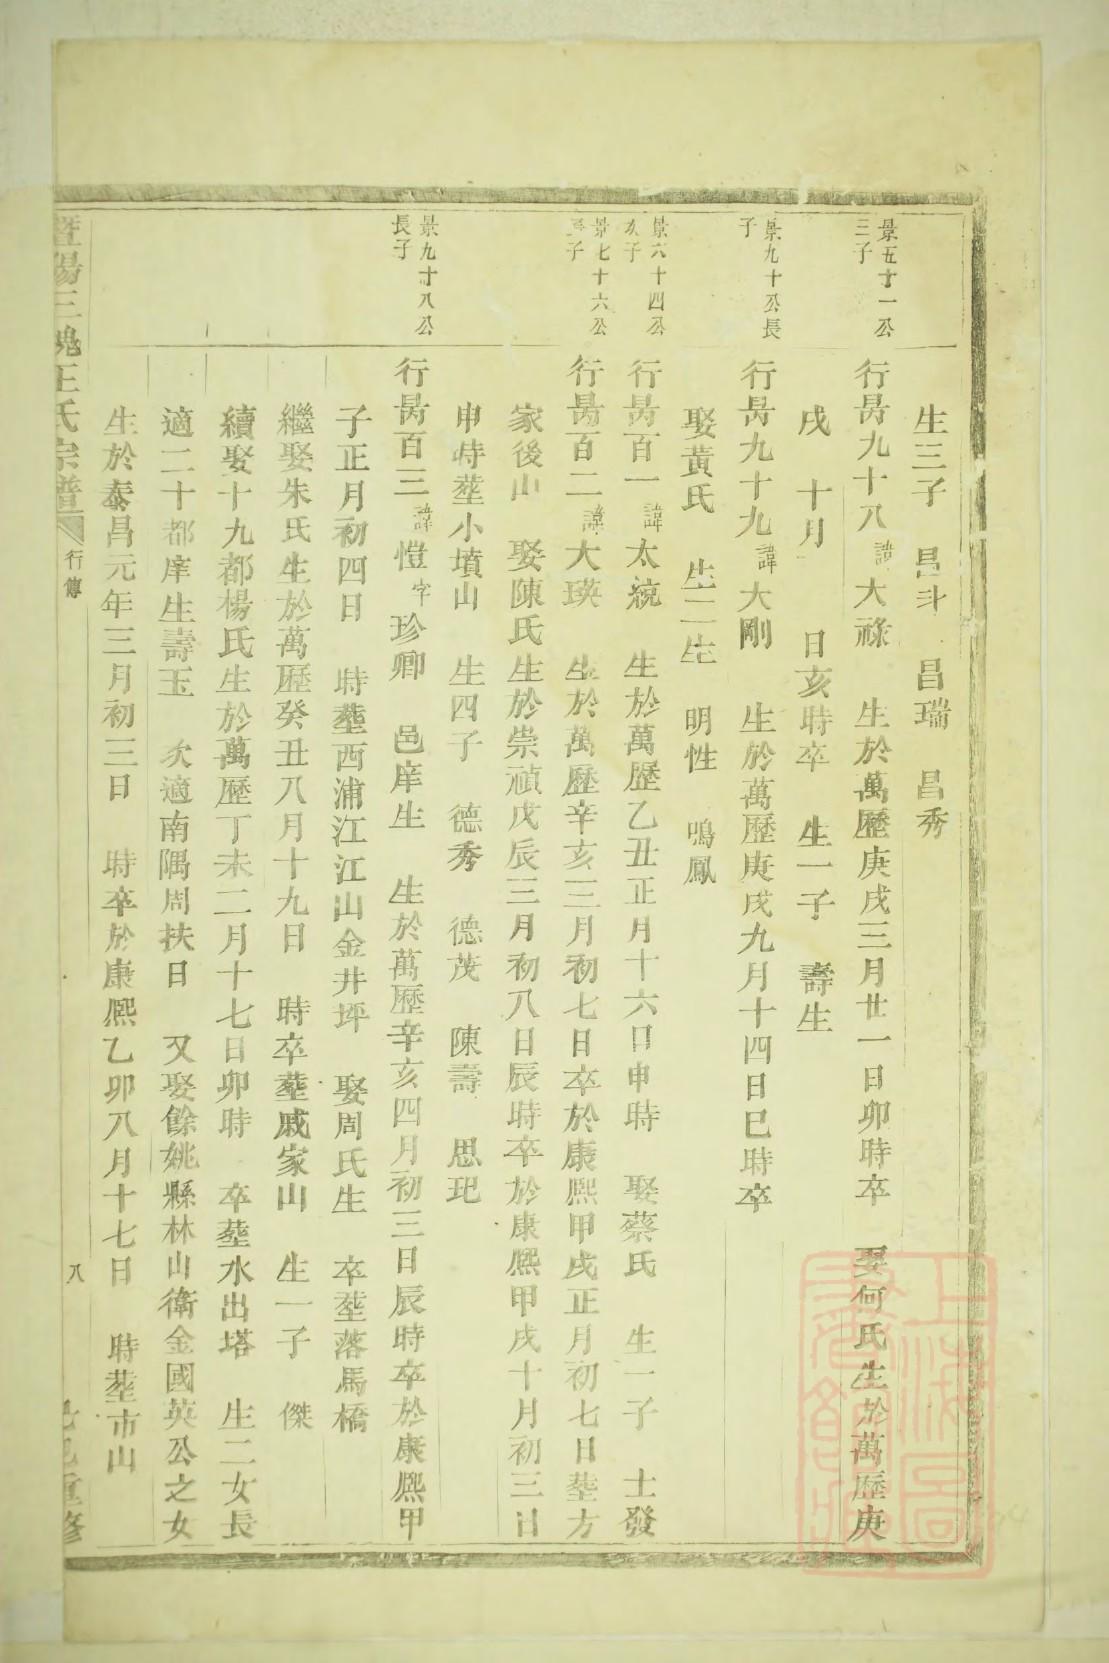 生三子 昌斗 昌瑞 昌秀
景五十一公
三子
行昺九十八諱大祿 生於萬歷庚戌三月廿一日卯時卒 娶何氏生於萬歷庚
戌 十月 日亥時卒 生一子 壽生
景九十公長
子
行昺九十九諱大剛 生於萬歷庚戌九月十四日巳時卒
娶黃氏 生二生 明性 鳴鳳
景六十四公
次子
行昺百一諱太統 生於萬歷乙丑正月十六日申時 娶蔡氏 生一子 士發
景七十六公
子
行昺百二諱大瑛 生於萬歷辛亥三月初七日卒於康熙甲戌正月初七日塟方
家後山 娶陳氏生於崇禎戊辰三月初八日辰時卒於康熙甲戌十月初三日
申時塟小墳山 生四子 德秀 德茂 陳壽 思玘
景九十八公
長子
行昺百三諱愷字珍卿 邑庠生 生於萬歷辛亥四月初三日辰時卒於康熙甲
子正月初四日 時塟西浦江江山金井坪 娶周氏生 卒塟落馬橋
繼娶朱氏生於萬歷癸丑八月十九日 時卒塟戚家山 生一子 傑
續娶十九都楊氏生於萬歷丁未二月十七日卯時 卒塟水出塔 生二女長
適二十都庠生壽玉 次適南隅周扶日 又娶餘姚縣林山衛金國英公之女
生於泰昌元年三月初三日 時卒於康熙乙卯八月十七日 時塟市山
暨陽三槐王氏宗譜 行傳 八 重修
上海圖書館藏